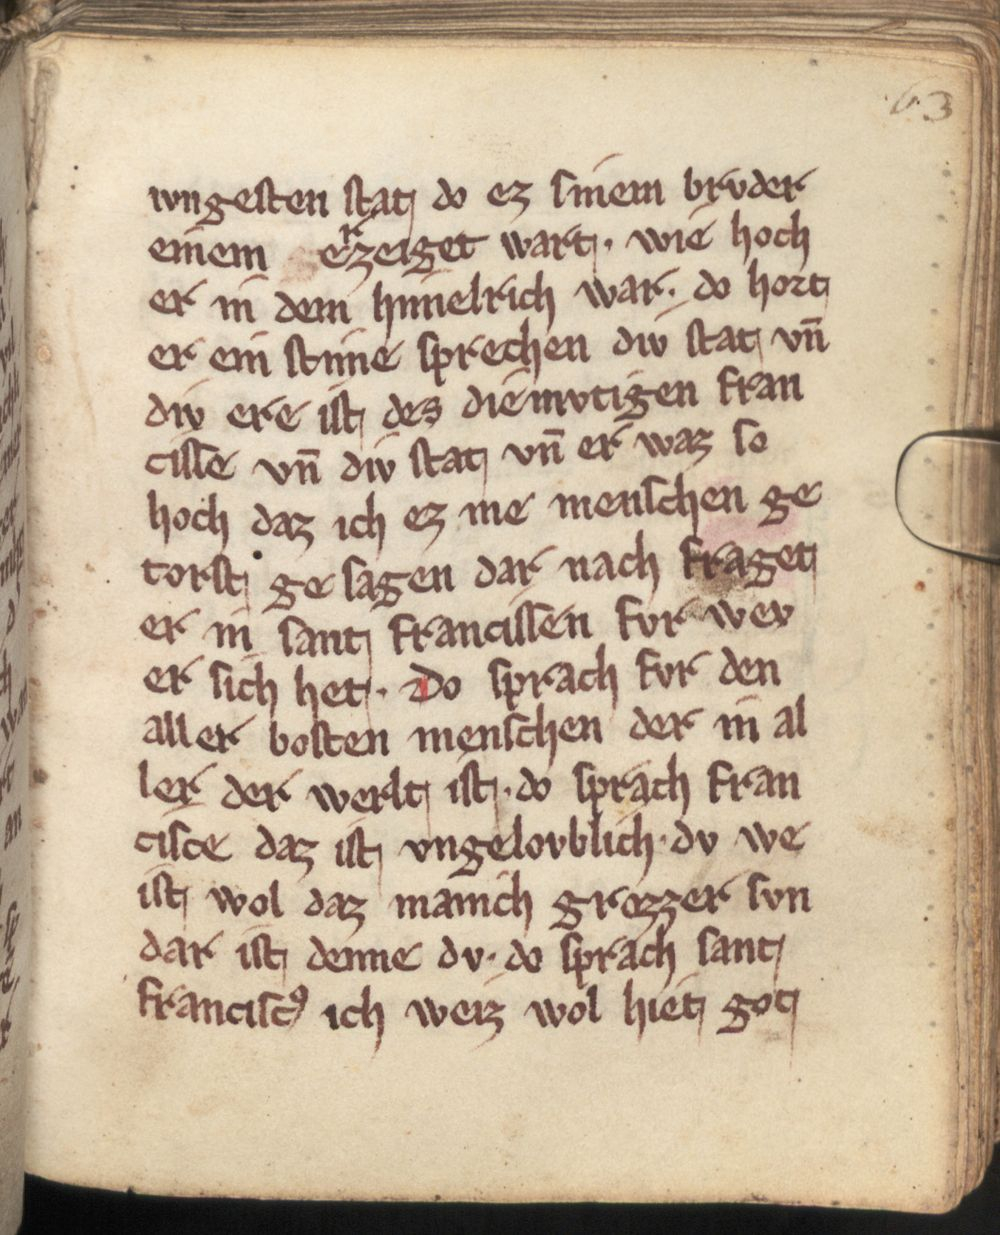 63
ivngesten stat do ez sinem brvder
einem erzeiget wart · wie hoch
er in dem himelrich war · do hort
er ein stīme sprechen div stat vn̄
div ere ist des diemvtigen fran
cisse vn̄ div stat vn̄ er waz so
hoch daz ich ez nie menschen ge
torst ge sagen dar nach fraget
er in sant francissen fvr wev
er sich het · Do sprach fvr den
aller bosten menschen der in al
ler der werlt ist · do sprach fran
cisce daz ist vngelovblich · dv we
ist wol daz manich grozzer svn
dar ist denne dv · do sprach sant
franciscꝰ ich weiz wol hiet got